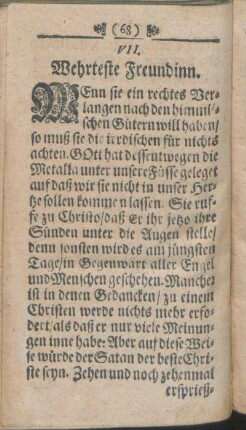 (68)
VII.
Wehrteste Freundinn.
WEnn sie ein rechtes Ver-
langen nach den himmli-
schen Gütern will haben/
so muß sie die irrdischen für nichts
achten. GOtt hat dessentwegen die
Metalla unter unsere Füsse geleget
auf daß wir sie nicht in unser Her-
tze sollen kommen lassen. Sie ruf-
fe zu Christo/ daß Er ihr jetzo ihre
Sünden unter die Augen stelle/
denn sonsten wird es am jüngsten
Tage/ in Gegenwart aller Engel
und Menschen geschehen. Mancher
ist in denen Gedancken/ zu einem
Christen werde nichts mehr erfo-
dert/ als daß er nur viele Meinun-
gen inne habe: Aber auf diese Wei-
se würde der Satan der beste Chri-
ste seyn. Zehen und noch zehenmal
ersprieß-